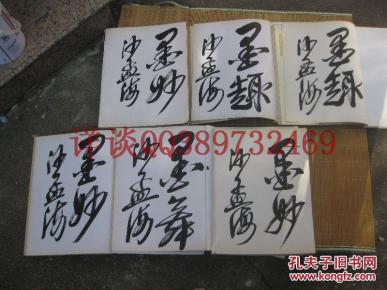 墨妙
沙孟海
墨趣
沙孟海
墨趣
沙孟海
详谈QQ389732469
墨妙
沙孟海
墨舞
沙孟海
墨妙
沙孟海
孔夫子旧书网